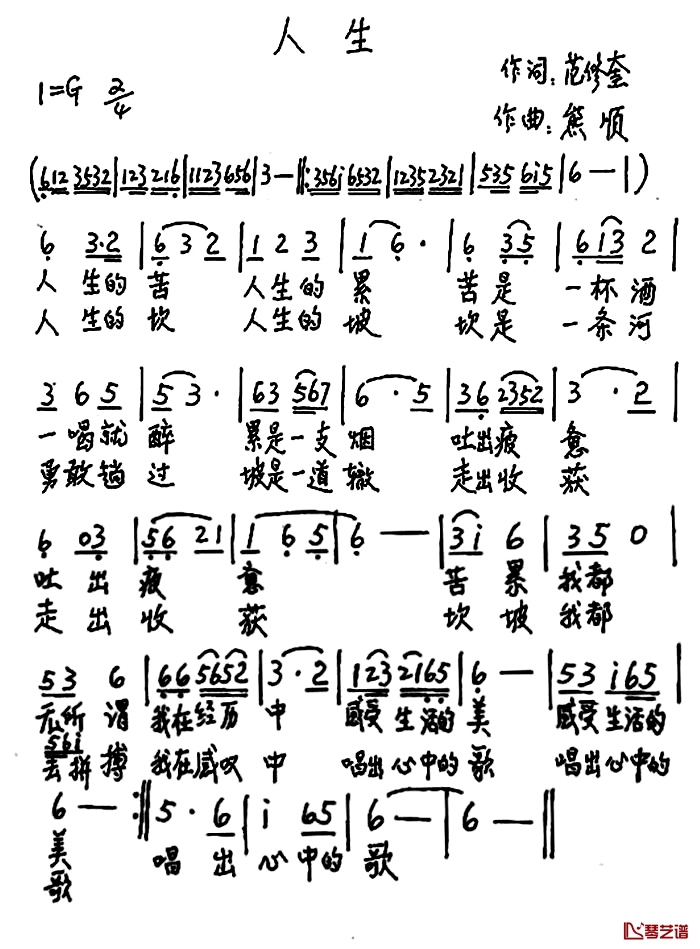 人生
作词:范修奎
1=G 2/4
作曲:熊顺
(612 3532|123 216|1123 656|3—‖:3561 6532|1235 2321|535 6i5|6—|)
6 3·2|6 3 2|1 2 3|1 6·|6 35|6 13 2|
人 生的 苦 人生的 累 苦是 一杯酒
人 生的 坎 人生的 坡 坎是 一条河
3 6 5|5 3·|63 567|6·5|36 2352|3·2|
一喝就 醉 累是一支 烟 吐出疲 惫
勇敢镐 过 坡是一道 辙 走出收 获
6 03|56 21|1 6 5|6—|3i 6|35 0|
吐 出 疲 惫 苦 累 我都
走 出 收 获 坎 坡 我都
53 6|66 5652|3·2|123 2165|6—|53 i65|
无所 谓 我在经历 中 感受 生活的 美 感受 生活的
561
去拼 搏 我在感叹 中 唱出 心中的 歌 唱出 心中的
6—:‖5·6|i 65|6—|6—‖
美 唱 出 心 中的 歌
歌
琴艺谱